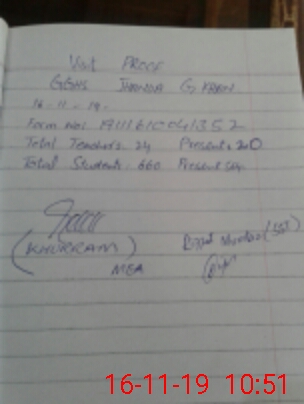 Visit PROOF
GGHS JHANDA G KHAN
16-11-19-
Form No: 19111610041352
Total Teachers. 24 Present = 20
Total Students. 660 Present
(KHURRAM)
MEA
(SST)
16-11-19 10:51